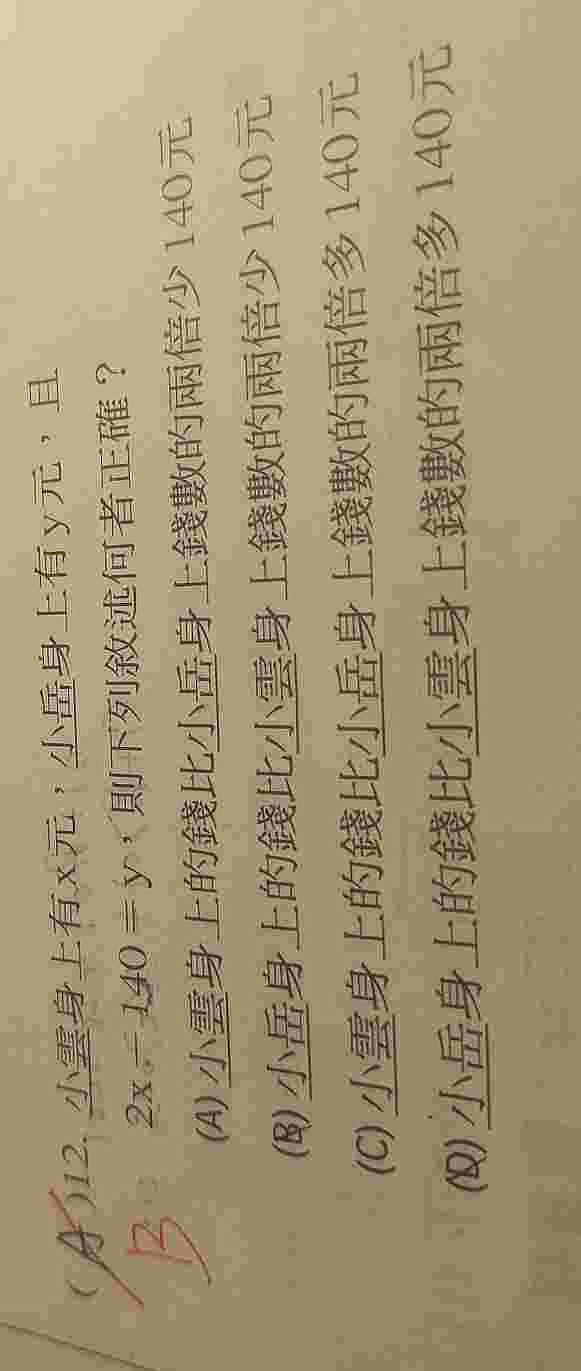 (A)12. 小雲身上有x元，小岳身上有y元，且
B 2x－140＝y，則下列敘述何者正確？
(A) 小雲身上的錢比小岳身上錢數的兩倍少140元
(B) 小岳身上的錢比小雲身上錢數的兩倍少140元
(C) 小雲身上的錢比小岳身上錢數的兩倍多140元
(D) 小岳身上的錢比小雲身上錢數的兩倍多140元